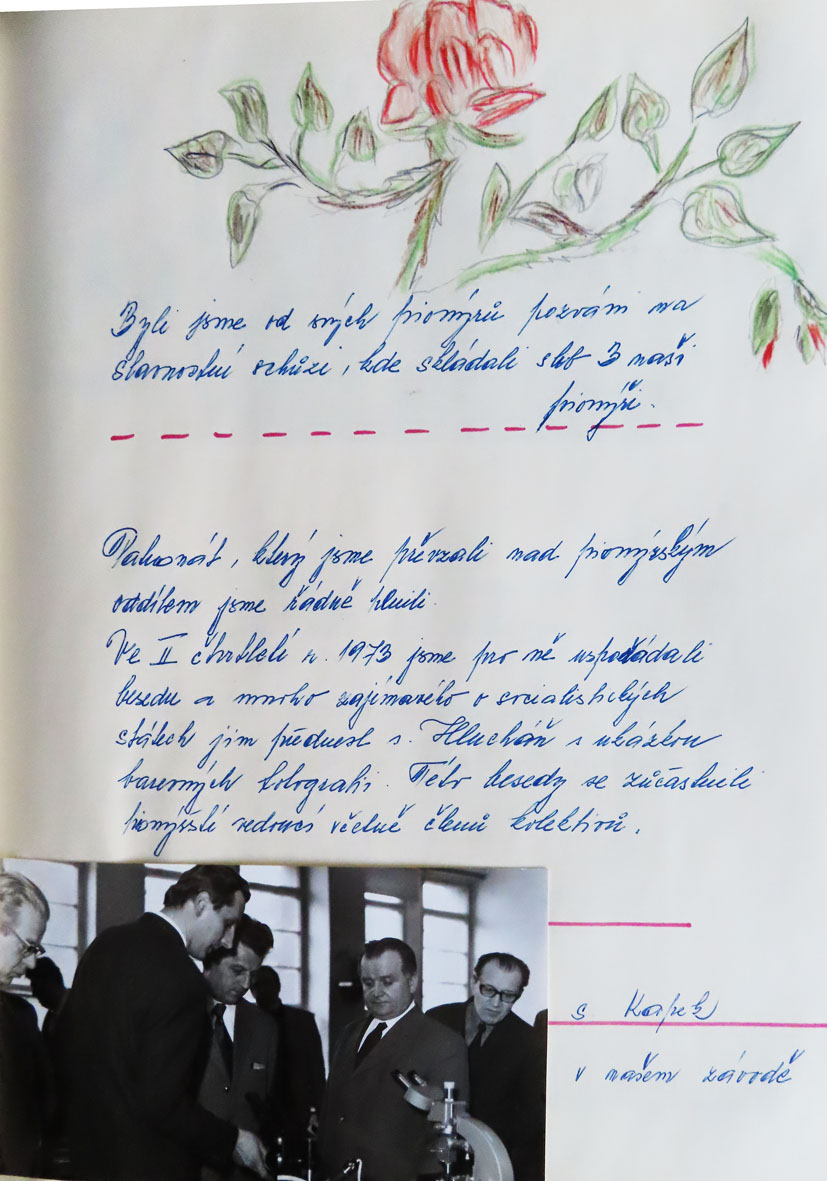 Byli jsme od svých pionýrů pozváni na
slavnostní schůzi, kde skládali slib 3 naši
pionýři.
Patronát, který jsme převzali nad pionýrským
oddílem jsme řádně plnili.
Ve II čtvrtletí r. 1973 jsme pro ně uspořádali
besedu a mnoho zajímavého o socialistických
státech jim přednesl s. Hlucháň s ukázkou
barevných fotografií. Této besedy se zúčastnili
pionýrští vedoucí včetně členů kolektivů.
s Korpek
v našem závodě